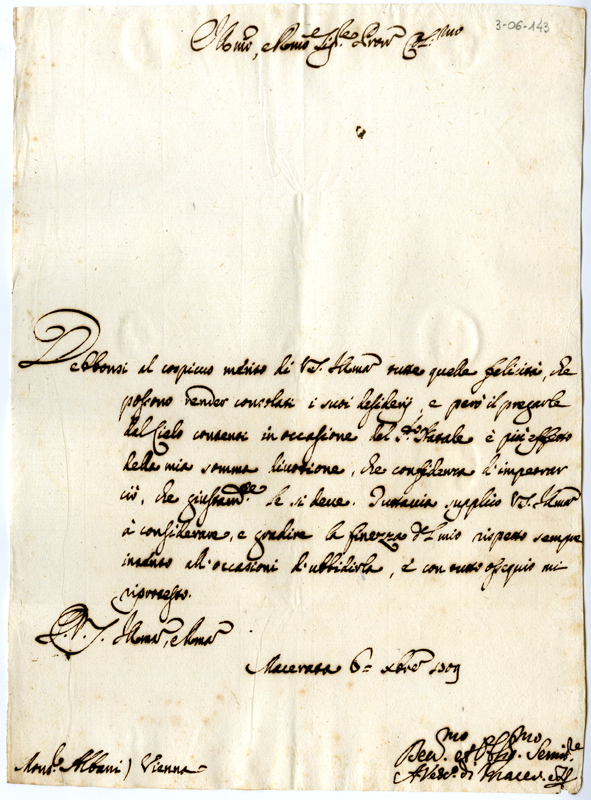 3-06-143
Illmo, e Rmo Sig.re Prõn Col.mo
Debbonsi al cospicuo merito di V.S. Illma tutte quelle felicità, che
possono render consolati i suoi desiderij, e però il pregarle
dal Cielo contenti in occasione del S.to Natale è più effetto
della mia somma divotione, che confidenza d'impetrar
ciò, che giustam.te se li deve. Tuttavia supplico V.S. Illma
à considerare, e gradire la finezza del mio rispetto sempre
intento all'occasioni d'ubbidirla, e con tutto ossequio mi
riprotesto.
D.V.S. Illma, e Rma
Macerata 6 = xbre 1709
Dev.mo et Obbl.mo Servit.re
A. Vesc.o di Macer.a
Mons.r Albani) Vienna =